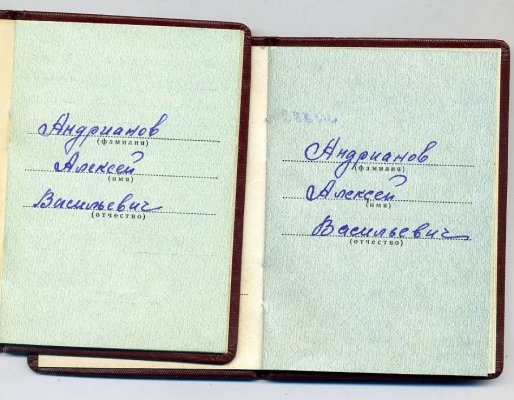 Андрианов
(фамилия)
Алексей
(имя)
Васильевич
(отчество)
Андрианов
(фамилия)
Алексей
(имя)
Васильевич
(отчество)